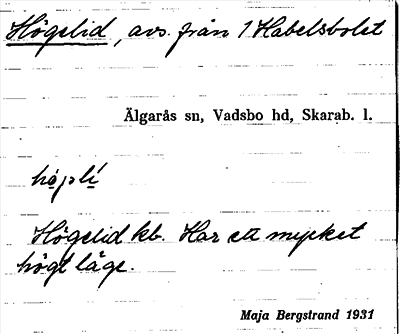 Högelid, avs. från 1 Habelsbolet
Älgarås sn, Vadsbo hd, Skarab. l.
Högelid kb. Har ett mycket
högt läge.
Maja Bergstrand 1931